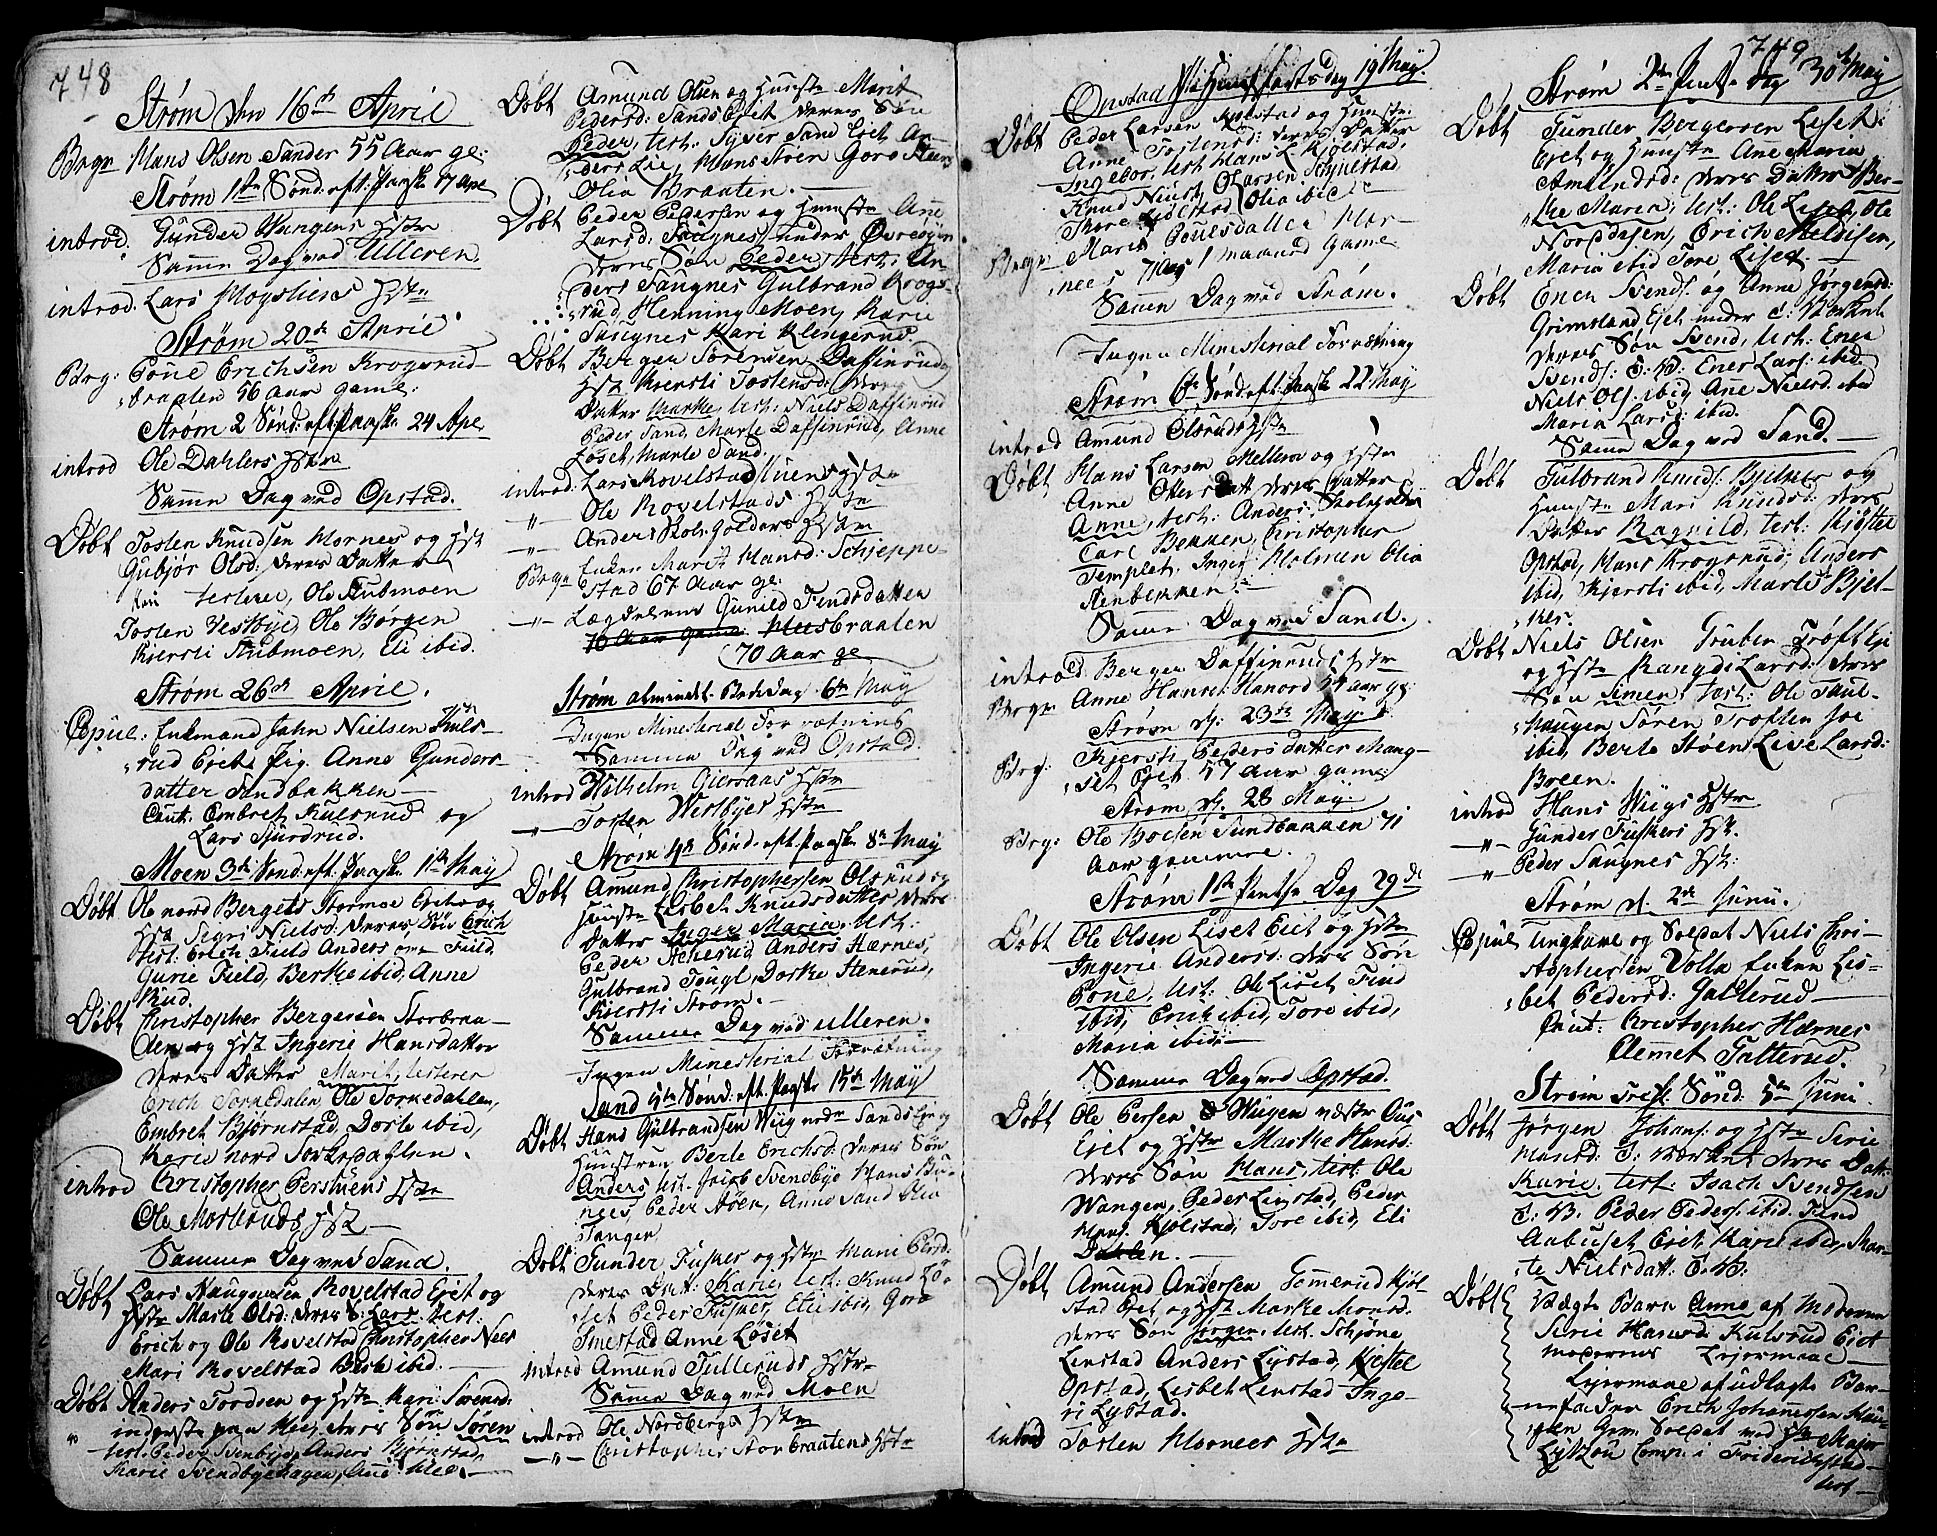 748
Strøm den 16de April
Begr Hans Olsen Sander 55 Aar ge:
Strøm 1ste Sønd: eft: Paaske 17 Apr
introd. Gunder Haugens Hstr
Samme Dag ved Ulleren.
introd. Lars Moystuens Hstr
Strøm 20de April
Begr: Poue Erichsen Krogsrud-
braaten 56 aar game:
Strøm 2 Sønd: eft: Paaske 24 Apr
introd Ole Dahlers Hstr
Samme Dag ved Opstad.
Døbt Tosten Knudsen Hornes og Hst
Gubjør Olsd: deres Datter
Kari testerer, Ole Stubmoen
Tosten Vestbye, Ole Børgen
Kiersti Stubmoen, Eli ibid.
Strøm 26de April.
Copul: Enkemand Jahn Nielsen Kuls-
rud Eie Pig. Anne Gunders-
datter Sandbakken
Caut: Embret Kulsrud og
Lars Sjurdrud.
Moen 3de Sønd: eft: Paaske 1ste May
Døbt Ole nord Bergets Stormoe Eie og
Hst Segri Nielsd: deres Søn Erich
test: Erich Field Anders Field
Gurie Field, Berthe ibid, Anne
Rud.
Døbt Christopher Bergersen Storbraa-
ten og Hst Ingerie Hansdatter
deres Datter Marit, testerer
Erich Torkedalen, Ole Torkedahlen,
Embret Bjørnstad, Dorte ibid,
Karie nord Torkedahlen.
introd Christopher Perstuens Hstr
Ole Mosteruds Hst
Samme Dag ved Sand.
Døbt Lars Haugersen Rovelstad Eiet og
Hstr Marte Olsd: deres S: Lars test:
Erich og Ole Rovelstad Christopher Nees
Mari Rovelstad Berte ibid.
Døbt Anders Tordsen og Hstr Kari Svensd:
inderste paa Nes, deres Søn Søren
test: Peder Svenbye, Anders Bjørnstad,
Karie Svendbyehagen, Ane Nes.
Døbt Amund Olsen og Hustr Marit
Pedersd: Sands Eiet deres Søn
Peder, test: Syver Sand Eiet An-
ders Lie, Hans Stoen Goro Stuen
Olia Braaten.
Døbt Peder Pedersen og Hustr Ane
Larsd: Saugnes under Øvrebyen
deres Søn Peder, test: An-
ders Saugnes Gulbrand Krogs-
rud, Henning Moen, Karie
Saugnes Kari Klengerud.
Døbt Berger Sørensen Daffinrud og
Hst Kiersti Tostensd: deres
Datter Marthe, test: Niels Daffinrud
Peder Sand, Marte Daffinrud, Anne
Løset, Marte Sand.
introd: Lars Rovelstad Huens Hstr
-"- Ole Rovelstads Hstr
-"- Anders Skole-holders Hstr
Begr Enken Marit Hansd: Schjeppe-
stad 67 Aar ge:
-"- Lægdelem Gunild Tendsdatter
70 Aar game Huusbraaten
70 aar ge
Strøm almindel: Bededag 6te May
Ingen Ministerial Forrætning
Samme Dag ved Opstad.
introd Wilhelm Giersaas Hstr
-"- Tosten Westbyes Hstr
Strøm 4de Sønd: eft: Paaske 8de May
Døbt Amund Christophersen Olsrud og
Hustr Lisbet Knudsdatter deres
Datter Inger Maria, test:
Peder Stenerud Anders Hærnes,
Gulbrand Tougl, Dorthe Stenerud,
Kiersti Strøm.
Samme Dag ved Ulleren.
Ingen Ministerial Forrætning
Sand 5te Sønd: eft: Paaske 15de May
Døbt Hans Gulbrandsen Wiig nedr Sands Eie og
Hustrue Berte Erichsd: deres Søn
Anders test. Jacob Svendbye Hans Bu-
nes, Peder Støen, Anne Sand Olia
Tangen
Døbt Gunder Fusker og Hstr Marie Persd:
deres Datt: Karie, test: Knud Lø-
set Peder Fusker, Eli ibid, Goro
Smestad Anne Løset
introd Amund Tulleruds Hstr
Samme Dag ved Moen
introd Ole Nordbergs Hstr
-"- Christopher Storbraatens Hstr
749
Opstad 19 May.
Døbt Peder Larsen Kjølstad og Hustr:
Anne Tostensd: deres Datter
Ingebor, test Hans L. Kjølstad,
Knud Niust, O Larsen Kjølstad
Thore Kjølstad Olia ibid
Begr Maria Pouelsdatter Hor-
nes 7 Aar 1 maaned Game
Samme Dag ved Strøm.
Ingen Ministerial Forrætning
Strøm 6te Sønd: eft: Paaske 22 May
introd Amund Olsruds Hstr
Døbt Hans Larsen Mellem og Hstr
Anne Ottersdatt deres Datter
Anne, test: Anders Skoleholder
Carl Bekken, Christopher
Templet, Inger Holmen Olia
Stenbekken.
Samme Dag ved Sand.
introd Berger Daffinruds Hstr
Begr Anne Hansd: Hanord 54 aar ge:
Strøm d. 23de May
Begr: Kiersti Pedersdatter Mang-
set Eiet 57 aar game
Strøm d. 28 May
Begr: Ole Boesen Sundbakken 71
aar gammel.
Strøm 1ste Pintse Dag 29de
Døbt Ole Olsen Liset Eiet og Hstr
Ingerie Andersd: deres Søn
Poue, test: Ole Liset Trud
ibid, Erich ibid, Tore ibid,
Maria ibid:
Samme Dag ved Opstad.
Døbt Ole Persen Wugen næstr Ous
Eiet og Hstr Marthe Hansd:
deres Søn Hans, test: Ole
Wangen, Peder Linstad, Peder
Hans: Kjølstad, Tore ibid, Eli
Dahlen.
Døbt Amund Andersen Gommerud Kjøl-
stad Eiet og Hstr Marthe Monsd:
deres Søn Jørgen, test. Schjøne
Linstad Anders Lystad, Kjestel
Opstad, Lisbet Linstad Inge-
ri Lystad.
introd Tosten Hornees Hstr
Strøm 2den Pintse Dag 30te May
Døbt Gunder Bergersen Liset
Eiet og Hustr Ane Maria
Amundsd: deres Datter Ber-
the Maria, test: Ole Liset, Ole
Noroldsen, Erich Meldisen,
Maria ibid Tore Liset.
Døbt Ener Svends: og Anne Jørgensd:
Grimsland Eiet under O: Værket
deres Søn Svend, test: Ener
Svends: O: V: Ener Lars: ibid
Niels Ols: ibid Ane Nielsd: ibid
Maria Larsd: ibid.
Samme Dag ved Sand.
Døbt Gulbrand Knuds: Bjelker og
Hustr Mari Knudsd: deres
Datter Ragnild, test: Kjøstel
Opstad, Hans Krogsrud, Anders
ibid, Kjersti ibid, Marte Bjel-
ker.
Døbt Niels Olsen Gruben Trøft Eie
og Hstr Rangdi Larsd: deres
Søn Simen, test: Ole Skul-
haugen Søren Troften Joe
ibid, Berte Støen Live Larsd:
Breen.
introd Hans Wigs Hstr
-"- Gunder Fuskers Hst.
-"- Peder Saugnes Hst:
Strøm d. 2de Junii.
Copul Ungkarl og Soldat Niels Chri-
stophersen Volla Enken Lis-
bet Pedersd: Galterud
Caut: Christopher Hærnes
Clemet Galterud.
Strøm Tref: Sønd: 5te Juni
Døbt Jørgen Johans: og Hstr Serie
Hansd: O: Værket deres Datt:
Karie, test: Isach Svendsen
O: V: Peder Peders: ibid. Tend
Aabuset Eiet Karie ibid, Mar-
te Nielsdatt: O: V:
Døbt Uægte Barn Anne af Moderen
Serie Hansd: Kulsrud Eiet
moderens Leiermaal
Leiermaal af udlagte Bar-
nefader Erich Johannessen Hau-
gen Gevr. Soldat ved Hr Major
Lytzou Comp: i Friderichstad
test